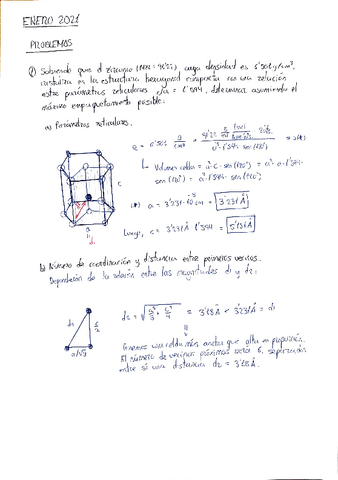 ENERO 2021
PROBLEMAS
① Sabiendo que el zirconio (M= 91'22) cuya densidad es 6'501 g/cm³,
cristaliza en la estructura hexagonal compacta con una relación
entre parámetros reticulares c/a = 1'594, determinar asumiendo el
máximo empaquetamiento posible:
a) Parámetros reticulares.
→ Volumen celda = a²·c·sen(120°) = a²·a·1'594·
sen(120°) = a³·1'594·sen(120°)
a = 3'231·10⁻⁸ cm = 3'231 Å
Luego, c = 3'231 Å · 1'594 = 5'151 Å
c
a
d₁
b) Número de coordinación y distancias entre primeros vecinos.
Dependerán de la relación entre las magnitudes d₁ y d₂:
d₂
c/2
a/√3
d₂ = √(a²/3 + c²/4) = 3'18 Å < 3'231 Å = d₁
Tenemos una celda más ancha que alta en proporción.
El número de vecinos próximos será 6, separación
entre sí una distancia d₂ = 3'18 Å.